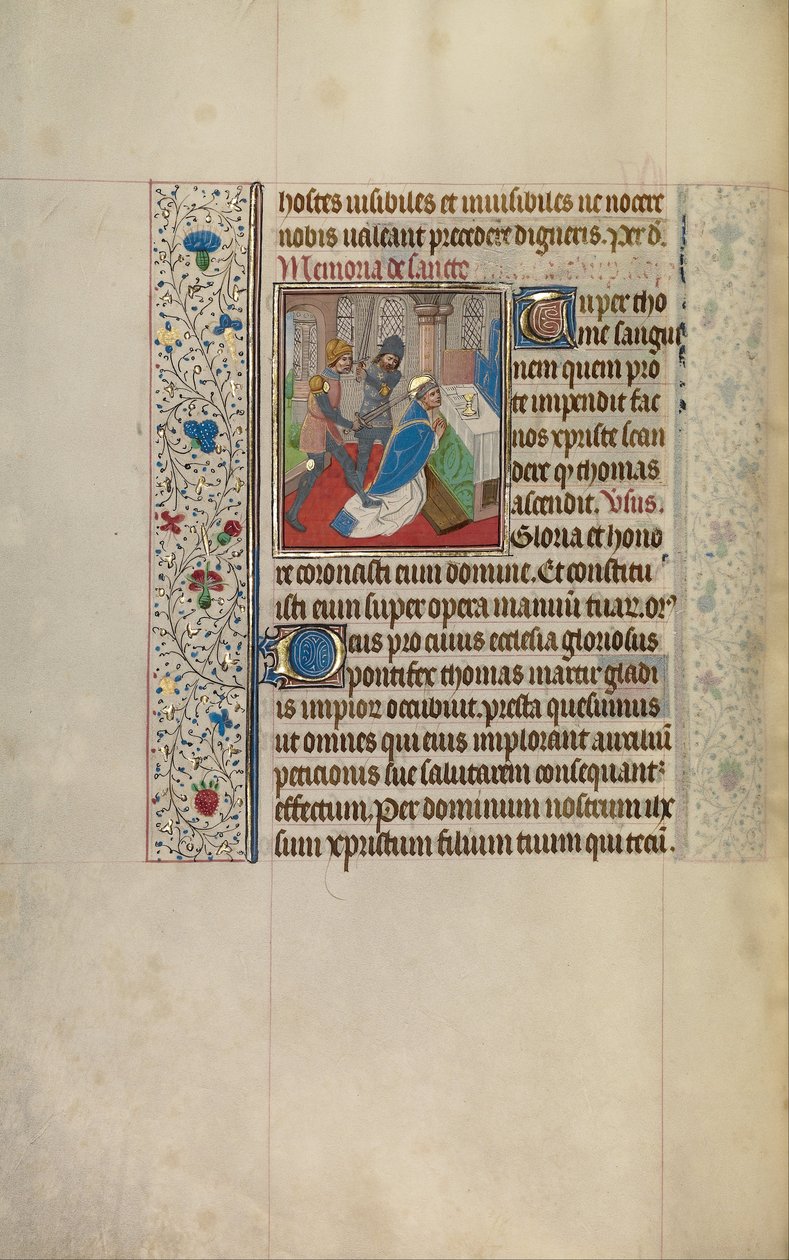 hostes uisibiles et inuisibiles ne nocere
nobis ualeant precedere digneris. Per d̄.
Memoria de sancto
Tu per tho
me sangui
nem quem pro
te impendit fac
nos xpriste scan
dere q̇ thomas
ascendit. Vsus.
Gloria et hono
re coronasti eum domine. Et constitu
isti eum super opera manuū tuaꝝ. orº
Deus pro cuius ecclesia gloriosus
pontifex thomas martir gladi
is impioꝝ occubuit. presta quesumus
ut omnes qui eius implorant auxiliū
peticionis sue salutarem consequant᷑
effectum. Per dominum nostrum ilx
sum xpristum filium tuum qui tecū.